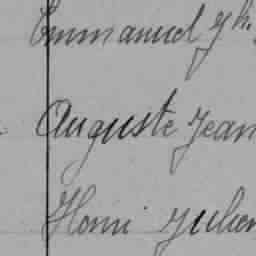 Emmanuel Jh.
Auguste Jean
Henri Julien